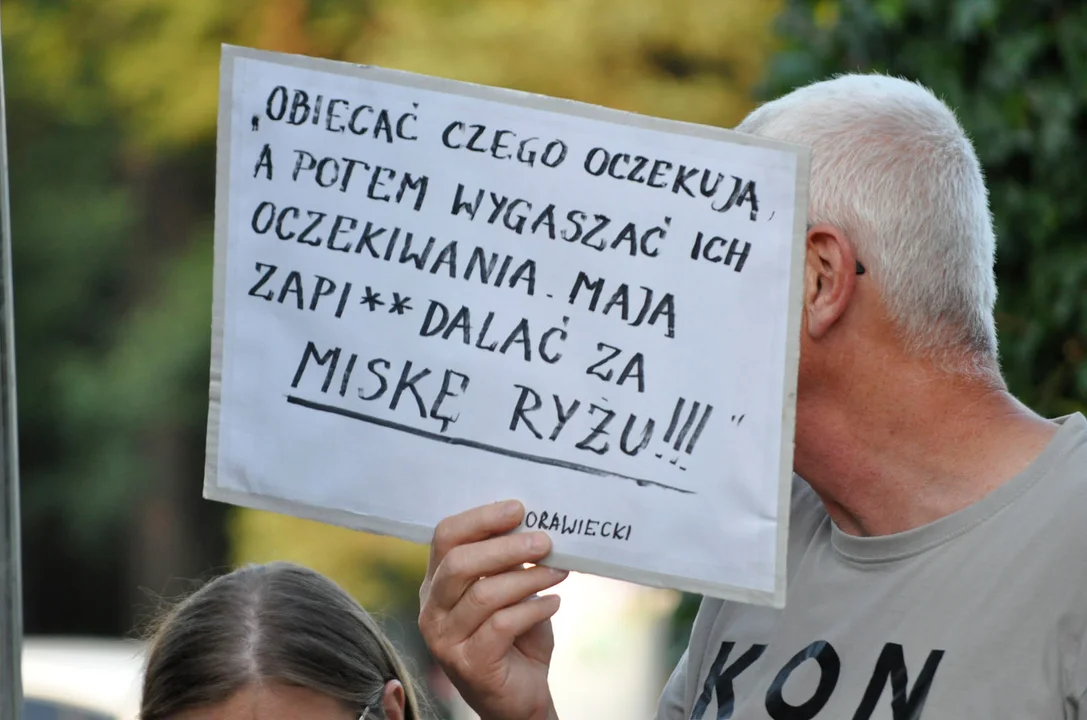 „OBIECAĆ CZEGO OCZEKUJĄ,
A POTEM WYGASZAĆ ICH
OCZEKIWANIA. MAJĄ
ZAPI**DALAĆ ZA
MISKĘ RYŻU!!!"
ORAWIECKI
KON